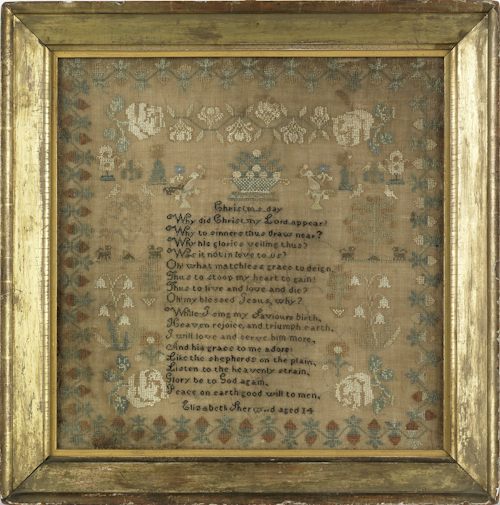 Christmas day
Why did Christ my Lord appear?
Why to sinners thus draws near?
Why his glories veiling thus?
Was it not in love to us?
Oh what matchless grace to deign,
Thus to stoop my heart to gain!
Thus to live and love and die?
Oh my blessed Jesus, why?
While I sing my Saviours birth,
Heaven rejoice, and triumph earth,
I will love and serve him more,
And his grace to me adore:
Like the shepherds on the plain,
Listen to the heavenly strain,
Glory be to God again,
Peace on earth good will to men,
Elisabeth Sherwud aged 14